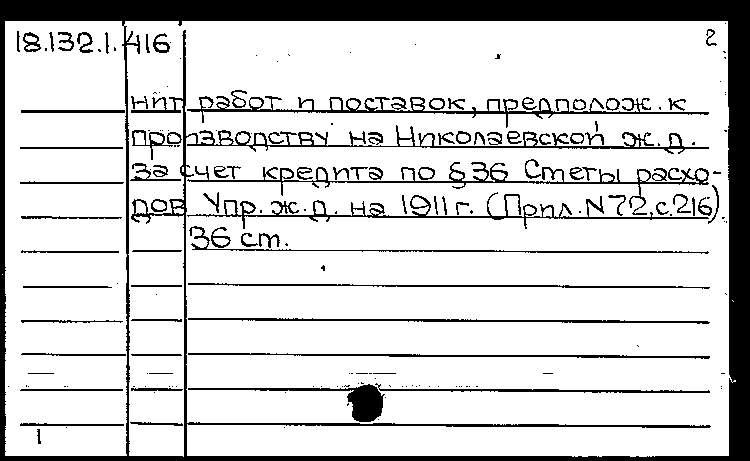 18.132.1.416
2
нит работ и поставок, предполож. к
производству на Николаевской ж.д.
за счет кредита по § 36 Сметы расхо-
дов Упр. ж.д. на 1911 г. (Прил. N 72, с.216).
36 ст.
1